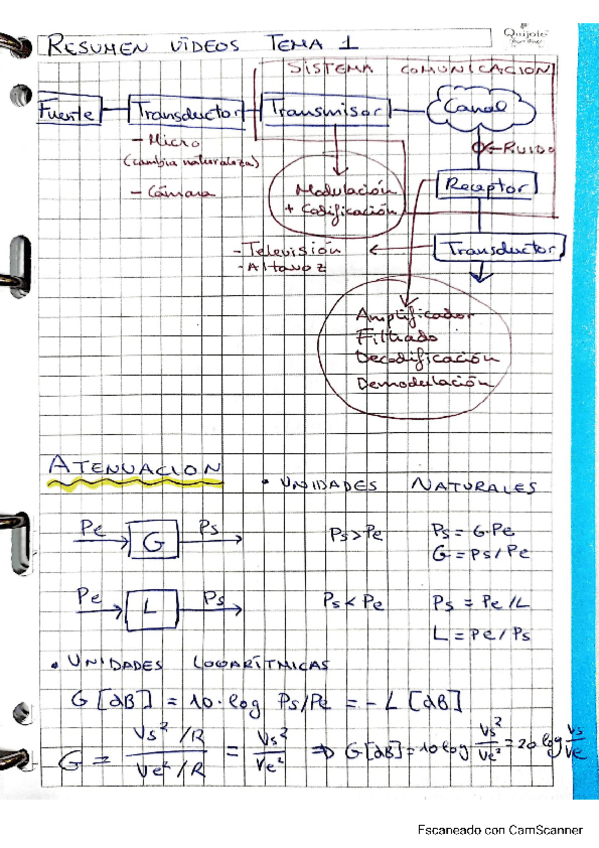 RESUMEN VÍDEOS TEMA 1
Quijote
SISTEMA COMUNICACION
Fuente
Transductor
Transmisor
Canal
- Micro
(cambia naturaleza)
- Cámara
Modulación
+ Codificación
←RUIDO
Receptor
Transductor
- Televisión
- Altavoz
Amplificador
Filtrado
Decodificación
Demodulación
ATENUACION
• UNIDADES NATURALES
Pe G Ps Ps>Pe Ps = G·Pe
G = Ps/Pe
Pe L Ps Ps<Pe Ps = Pe/L
L = Pe/Ps
• UNIDADES LOGARÍTMICAS
G [dB] = 10·log Ps/Pe = - L [dB]
G = Vs²/R / Ve²/R = Vs²/Ve² ⇒ G[dB] = 10 log Vs²/Ve² = 20 log Vs/Ve
Escaneado con CamScanner